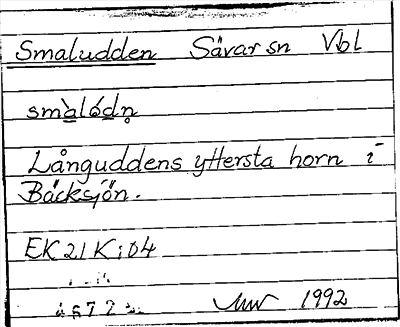 Smaludden Sävar sn Vbl
smàlódn̥
Långuddens yttersta horn i
Bäcksjön.
EK 21 K:04
1992